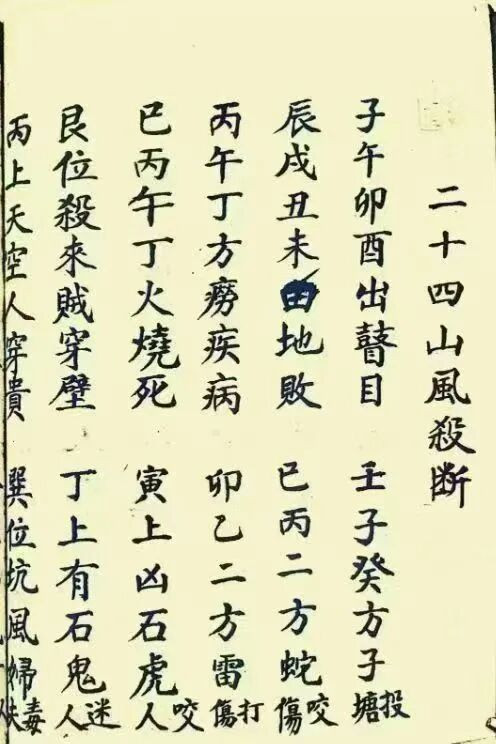 二十四山風殺断
子午卯酉出瞽目 壬子癸方子投塘
辰戌丑未田地敗 巳丙二方蛇咬傷
丙午丁方癆疾病 卯乙二方雷打傷
巳丙午丁火燒死 寅上凶石虎咬人
艮位殺來賊穿壁 丁上有石鬼迷人
丙上天空人穿貴 巽位坑風婦毒夫